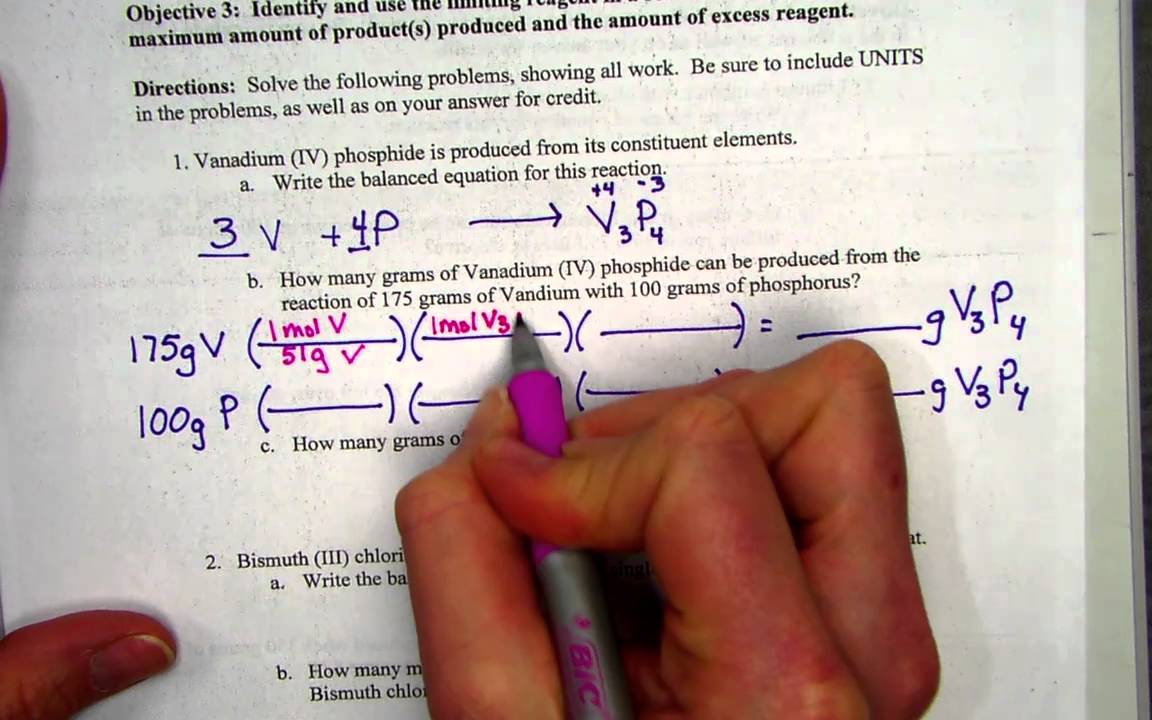 Objective 3: Identify and use the limiting reagent in
maximum amount of product(s) produced and the amount of excess reagent.
Directions: Solve the following problems, showing all work. Be sure to include UNITS
in the problems, as well as on your answer for credit.
1. Vanadium (IV) phosphide is produced from its constituent elements.
a. Write the balanced equation for this reaction.
+4 -3
3 V + 4P → V₃P₄
b. How many grams of Vanadium (IV) phosphide can be produced from the
reaction of 175 grams of Vandium with 100 grams of phosphorus?
175g V (1 mol V / 51g V)(1 mol V3 / )( ) = ____ g V₃P₄
100g P ( )( ( g V₃P₄
c. How many grams o
2. Bismuth (III) chlori at.
a. Write the ba singl
b. How many m
Bismuth chlo
BIC